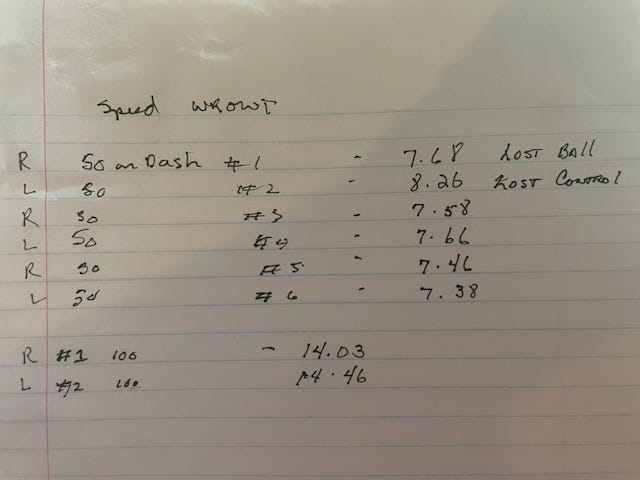 Speed WROWT
R 50 m Dash #1 - 7.68 LOST BALL
L 50 #2 - 8.26 LOST CONTROL
R 50 #3 - 7.58
L 50 #4 - 7.66
R 50 #5 - 7.46
L 50 #6 - 7.38
R #1 100 - 14.03
L #2 100 14.46